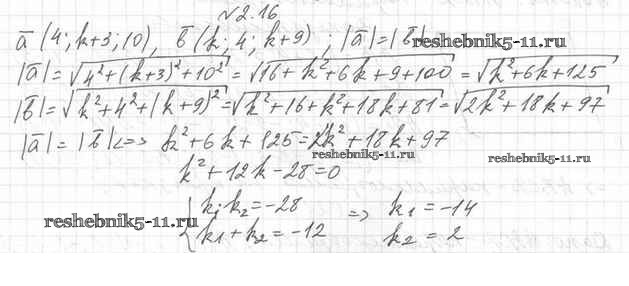 √2.16
a̅ (4; k+3; 10), b̅ (k; 4; k+9) ; |a̅|=|b̅| reshebnik5-11.ru
|a̅|=√4²+(k+3)²+10² = √16+k²+6k+9+100 = √k²+6k+125
|b̅|=√k²+4²+(k+9)² = √k²+16+k²+18k+81 = √2k²+18k+97
|a̅|=|b̅| <=> k²+6k+125=2k²+18k+97
reshebnik5-11.ru reshebnik5-11.ru
k²+12k-28=0
{ k₁k₂=-28 => k₁=-14
reshebnik5-11.ru
k₁+k₂=-12 k₂=2